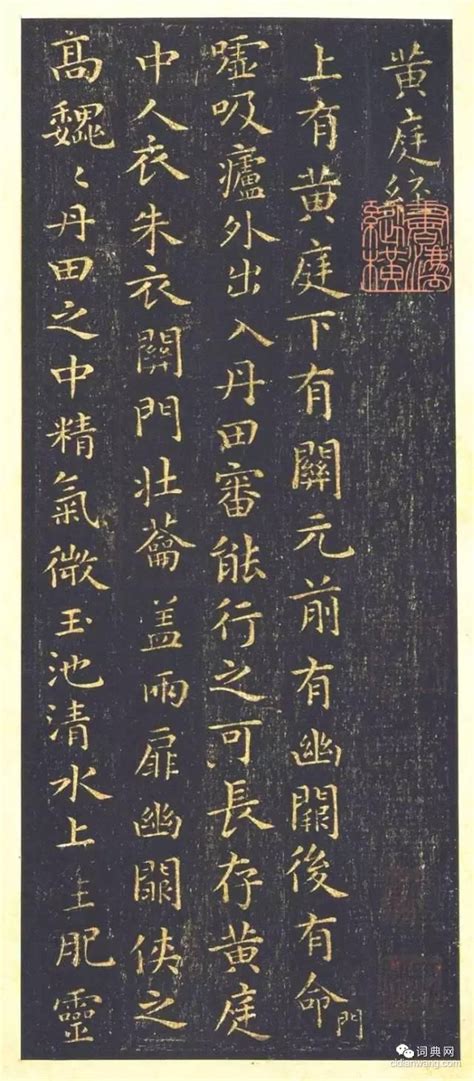 黄庭經
上有黄庭下有關元前有幽闕後有命門
噓吸廬外出入丹田審能行之可長存黄庭
中人衣朱衣關門壮蘥盖兩扉幽闕侠之
高魏〻丹田之中精氣微玉池清水上生肥靈
词典网
cidianwang.com